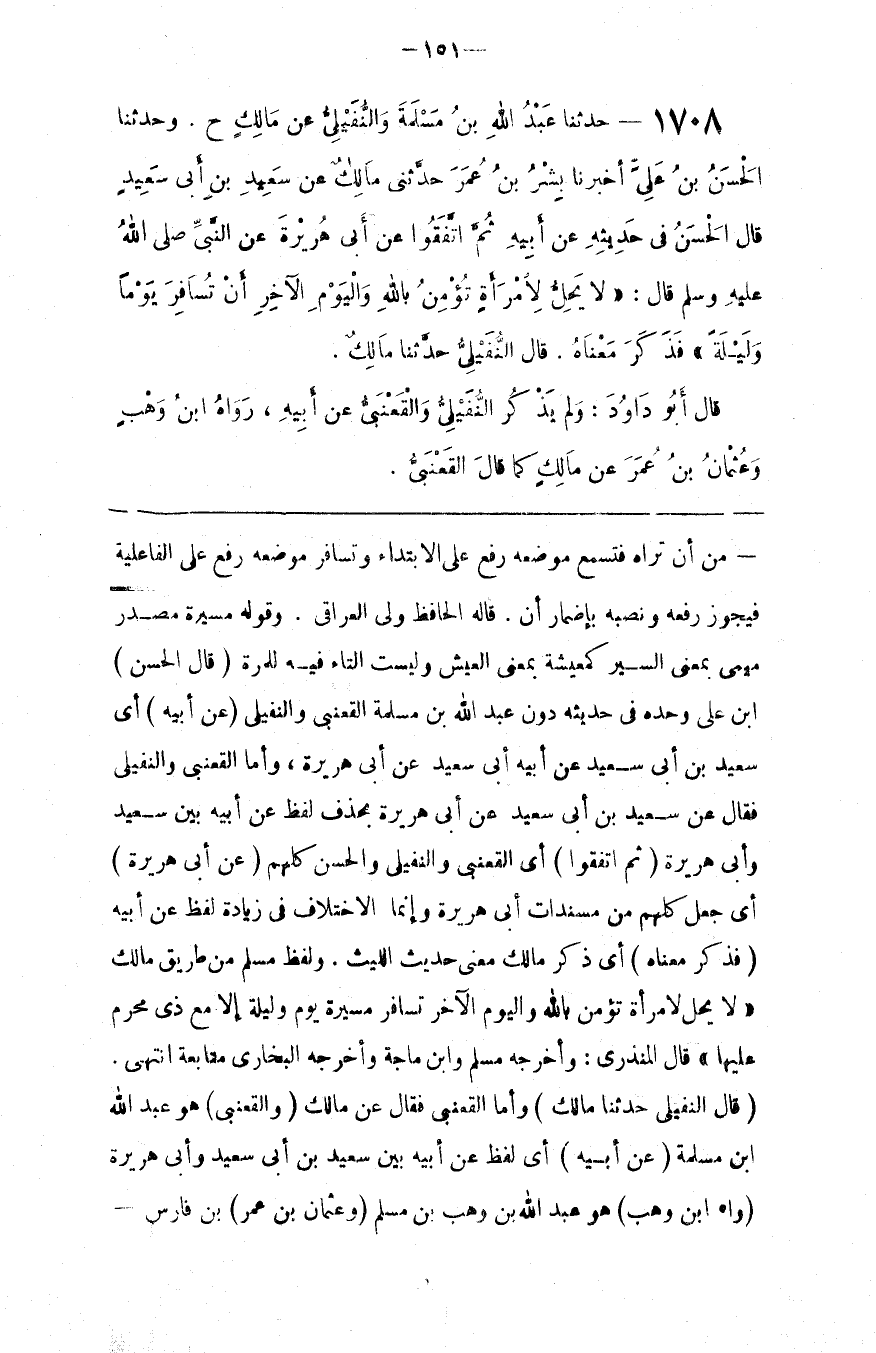 —١٥١—
١٧٠٨ — حدثنا عَبْدُ اللهِ بنُ مَسْلَمَةَ وَالنُّفَيْلِيُّ عن مَالِكٍ ح . وحدثنا
الْحَسَنُ بنُ عَلِيٍّ أخبرنا بِشْرُ بنُ عُمَرَ حدَّثنى مالِكٌ عن سَعِيدِ بنِ أَبى سَعِيدٍ
قال الْحَسَنُ فى حَدِيثِهِ عن أَبِيهِ ثُمَّ اتَّفَقُوا عن أَبى هُرَيْرَةَ عن النَّبيِّ صلى اللهُ
عليهِ وسلم قال : « لا يَحِلُّ لِأمْرَأَةٍ تُؤْمِنُ بالله وَالْيَوْمِ الْآخِرِ أَنْ تُسَافِرَ يَوْماً
وَلَيْلَةً » فَذَكَرَ مَعْنَاهُ . قال النُّفَيْلِيُّ حدَّثنا مالِكٌ .
قال أَبُو دَاوُدَ : وَلم يَذْكُر النُّفَيْلِيُّ وَالْقَعْنَبيُّ عن أَبِيهِ ، رَوَاهُ ابنُ وَهْبٍ
وَعُثْمانُ بنُ عُمَرَ عن مالِكٍ كما قالَ القَعْنَبيُّ .
— من أن تراه فتسمع موضعه رفع على الابتداء وتسافر موضعه رفع على الفاعلية
فيجوز رفعه ونصبه بإضمار أن . قاله الحافظ ولى العراقى . وقوله مسيرة مصدر
ميمى بمعنى السير كمعيشة بمعنى العيش وليست التاء فيه للمرة ( قال الحسن )
ابن على وحده فى حديثه دون عبد الله بن مسلمة القعنبى والنفيلى (عن أبيه ) أى
سعيد بن أبى سعيد عن أبيه أبى سعيد عن أبى هريرة ، وأما القعنبى والنفيلى
فقال عن سعيد بن أبى سعيد عن أبى هريرة بحذف لفظ عن أبيه بين سعيد
وأبى هريرة ( ثم اتفقوا ) أى القعنبى والنفيلى والحسن كلهم ( عن أبى هريرة )
أى جعل كلهم من مسندات أبى هريرة وإنما الاختلاف فى زيادة لفظ عن أبيه
( فذكر معناه ) أى ذكر مالك معنى حديث الليث . ولفظ مسلم من طريق مالك
« لا يحل لامرأة تؤمن بالله واليوم الآخر تسافر مسيرة يوم وليلة إلا مع ذى محرم
عليها » قال المنذرى : وأخرجه مسلم وابن ماجة وأخرجه البخارى متابعة انتهى .
( قال النفيلى حدثنا مالك ) وأما القعنبى فقال عن مالك ( والقعنبى) هو عبد الله
ابن مسلمة ( عن أبيه ) أى لفظ عن أبيه بين سعيد بن أبى سعيد وأبى هريرة
(واه ابن وهب) هو عبد الله بن وهب بن مسلم (وعثمان بن عمر) بن فارس —